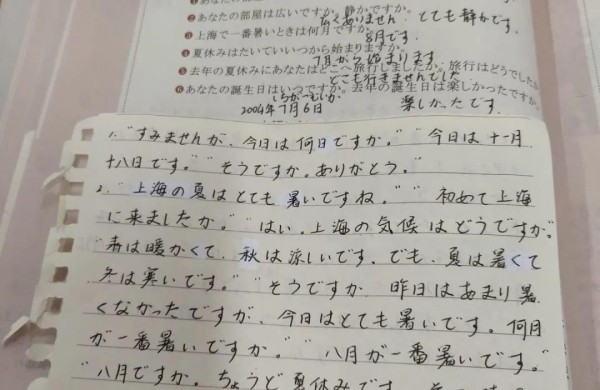 ❷あなたの部屋は広いですか。静かですか。
広くありません。とても静かです。
❸上海で一番暑いときは何月ですか。
8月です。
❹夏休みはたいていいつから始まりますか。
7月から始まります
❺去年の夏休みにあなたはどこへ旅行しましたか。旅行はどうでしたか
どこも行きませんでした
❻あなたの誕生日はいつですか。去年の誕生日は楽しかったですか。
しちがつむいか
2004年7月6日 楽しかったです。
1. "すみませんが、今日は何日ですか。" "今日は十一月
十八日です。" "そうですか。ありがとう。"
2. "上海の夏はとても暑いですね。" "初めて上海
に来ましたか。" "はい。上海の気候はどうですか。"
"春は暖かくて、秋は涼しいです。でも、夏は暑くて
冬は寒いです。" "そうですか。昨日はあまり暑
くなかったですが、今日はとても暑いです。何月
が一番暑いですか。" "八月が一番暑いです。"
"八月ですか。ちょうど夏休みです。